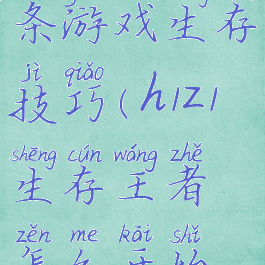 条游戏生存
jì qiǎo
技巧(h1z1
shēng cún wáng zhě
生存王者
zěn me kāi shǐ
怎么开始